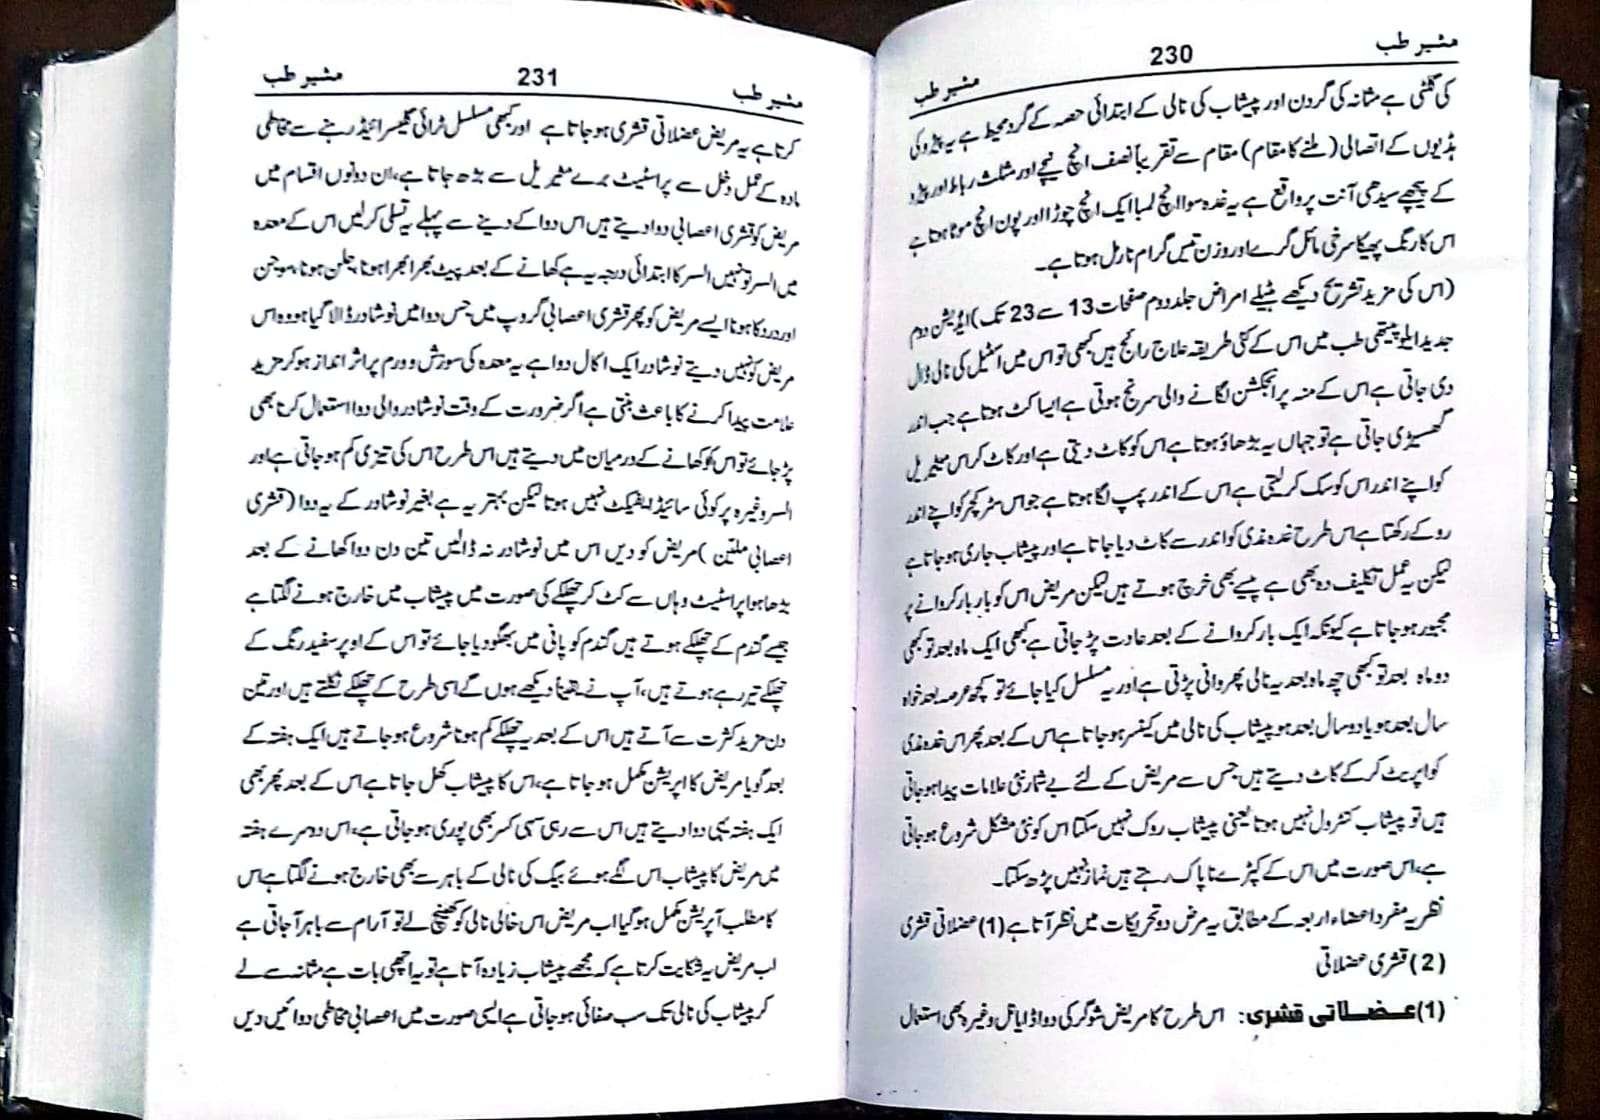 مشیر طب 230 مشیر طب
کی گلٹی ہے مثانہ کی گردن اور پیشاب کی نالی کے ابتدائی حصہ کے گرد محیط ہے یہ پیڑو کی
ہڈیوں کے اتصالی (ملنے کا مقام) مقام سے تقریباً نصف انچ نیچے اور مثلث رباط اور پیڑو
کے پیچھے سیدھی آنت پر واقع ہے یہ غدہ سوا انچ لمبا ایک انچ چوڑا اور پون انچ موٹا ہوتا ہے
اس کا رنگ پھیکا سرخی مائل گرے اور وزن تیس گرام نارمل ہوتا ہے۔
(اس کی مزید تشریح دیکھے ٹیبلے امراض جلد دوم صفحات 13 سے 23 تک) ایڈیشن دوم
جدید ایلوپیتھی طب میں اس کے کئی طریقہ علاج رائج ہیں کبھی تو اس میں اسٹیل کی نالی ڈال
دی جاتی ہے اس کے منہ پر انجکشن لگانے والی سرنج ہوتی ہے ایسا کٹ ہوتا ہے جب اندر
گھسیڑی جاتی ہے تو جہاں یہ بڑھاؤ ہوتا ہے اس کو کاٹ دیتی ہے اور کاٹ کر اس میٹیریل
کو اپنے اندر اس کو سک کر لیتی ہے اس کے اندر پمپ لگا ہوتا ہے جو اس سٹرکچر کو اپنے اندر
روکے رکھتا ہے اس طرح غدہ مذی کو اندر سے کاٹ دیا جاتا ہے اور پیشاب جاری ہو جاتا ہے
لیکن یہ عمل تکلیف دہ بھی ہے پیسے بھی خرچ ہوتے ہیں لیکن مریض اس کو بار بار کروانے پر
مجبور ہو جاتا ہے کیونکہ ایک بار کروانے کے بعد عادت پڑ جاتی ہے کبھی ایک ماہ بعد تو کبھی
دو ماہ بعد تو کبھی چھ ماہ بعد یہ نالی پھروانی پڑتی ہے اور یہ مسلسل کیا جائے تو کچھ عرصہ بعد خواہ
سال بعد ہو یا دو سال بعد ہو پیشاب کی نالی میں کینسر ہو جاتا ہے اس کے بعد پھر اس غدہ مذی
کو اپریٹ کر کے کاٹ دیتے ہیں جس سے مریض کے لئے بے شمار نئی علامات پیدا ہو جاتی
ہیں تو پیشاب کنٹرول نہیں ہوتا یعنی پیشاب روک نہیں سکتا اس کو نئی مشکل شروع ہو جاتی
ہے، اس صورت میں اس کے کپڑے ناپاک رہتے ہیں نماز نہیں پڑھ سکتا۔
نظریہ مفرد اعضاء اربعہ کے مطابق یہ مرض دو تحریکات میں نظر آتا ہے (1) عضلاتی قشری
(2) قشری عضلاتی
(1) عضلاتی قشری: اس طرح کا مریض شوگر کی دوا ڈایا نل وغیرہ بھی استعمال
مشیر طب 231 مشیر طب
کرتا ہے یہ مریض عضلاتی قشری ہو جاتا ہے اور کبھی مسلسل ٹرائی گلیسرائیڈ رہنے سے مخاطی
مادہ کے عمل دخل سے پراسٹیٹ برے مٹیریل سے بڑھ جاتا ہے، ان دونوں اقسام میں
مریض کو قشری اعصابی دوا دیتے ہیں اس دوا کے دینے سے پہلے یہ تسلی کر لیں اس کے معدہ
میں السر تو نہیں السر کا ابتدائی درجہ یہ ہے کھانے کے بعد پیٹ بھرا بھرا ہونا، جلن ہونا، چبھن
اور درد کا ہونا ایسے مریض کو پھر قشری اعصابی گروپ میں جس دوا میں نوشادر ڈالا گیا ہو وہ اس
مریض کو نہیں دیتے نوشادر ایک اکال دوا ہے یہ معدہ کی سوزش و ورم پر اثر انداز ہو کر مزید
علامت پیدا کرنے کا باعث بنتی ہے اگر ضرورت کے وقت نوشادر والی دوا استعمال کرنا بھی
پڑ جائے تو اس کو کھانے کے درمیان میں دیتے ہیں اس طرح اس کی تیزی کم ہو جاتی ہے اور
السر وغیرہ پر کوئی سائیڈ ایفیکٹ نہیں ہوتا لیکن بہتر یہ ہے بغیر نوشادر کے یہ دوا (قشری
اعصابی ملین) مریض کو دیں اس میں نوشادر نہ ڈالیں تین دن دوا کھانے کے بعد
بڑھا ہوا پراسٹیٹ وہاں سے کٹ کر چھلکے کی صورت میں پیشاب میں خارج ہونے لگتا ہے
جیسے گندم کے چھلکے ہوتے ہیں گندم کو پانی میں بھگو دیا جائے تو اس کے اوپر سفید رنگ کے
چھلکے تیر رہے ہوتے ہیں، آپ نے یقیناً دیکھے ہوں گے اسی طرح کے چھلکے نکلتے ہیں اور تین
دن مزید کثرت سے آتے ہیں اس کے بعد یہ چھلکے کم ہونا شروع ہو جاتے ہیں ایک ہفتہ کے
بعد گویا مریض کا اپریشن مکمل ہو جاتا ہے، اس کا پیشاب کھل جاتا ہے اس کے بعد پھر بھی
ایک ہفتہ یہی دوا دیتے ہیں اس سے رہی سہی کسر بھی پوری ہو جاتی ہے، اس دوسرے ہفتہ
میں مریض کا پیشاب اس لگے ہوئے بیگ کی نالی کے باہر سے بھی خارج ہونے لگتا ہے اس
کا مطلب آپریشن مکمل ہو گیا اب مریض اس خالی نالی کو کھینچ لے تو آرام سے باہر آ جاتی ہے
اب مریض یہ شکایت کرتا ہے کہ مجھے پیشاب زیادہ آتا ہے تو یہ اچھی بات ہے مثانہ سے لے
کر پیشاب کی نالی تک سب صفائی ہو جاتی ہے ایسی صورت میں اعصابی مخاطی دوائیں دیں